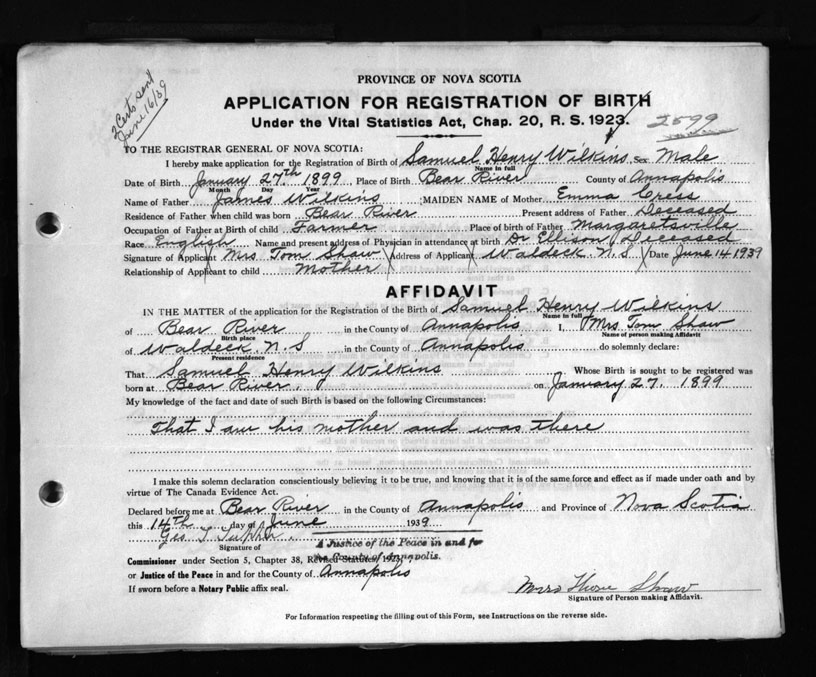 2 Certs sent
June 16/39
PROVINCE OF NOVA SCOTIA
APPLICATION FOR REGISTRATION OF BIRTH
Under the Vital Statistics Act, Chap. 20, R. S. 1923.
2599
TO THE REGISTRAR GENERAL OF NOVA SCOTIA:
I hereby make application for the Registration of Birth of Samuel Henry Wilkins Sex Male
Name in full
Date of Birth January 27th 1899 Place of Birth Bear River County of Annapolis
Month Day Year
Name of Father James Wilkins MAIDEN NAME of Mother Emma
Residence of Father when child was born Bear River Present address of Father Deceased
Occupation of Father at Birth of child Farmer Place of birth of Father Margaretsville
Race English Name and present address of Physician in attendance at birth Dr Ellison / Deceased
Signature of Applicant Mrs Tom Shaw Address of Applicant Waldeck N.S Date June 14 1939
Relationship of Applicant to child Mother
AFFIDAVIT
IN THE MATTER of the application for the Registration of the Birth of Samuel Henry Wilkins
Name in full
of Bear River in the County of Annapolis I, Mrs Tom Shaw
Birth place Name of person making Affidavit
of Waldeck N.S in the County of Annapolis do solemnly declare:
Present residence
That Samuel Henry Wilkins Whose Birth is sought to be registered was
born at Bear River. on January 27. 1899
My knowledge of the fact and date of such Birth is based on the following Circumstances:
That I am his mother and was there
I make this solemn declaration conscientiously believing it to be true, and knowing that it is of the same force and effect as if made under oath and by
virtue of The Canada Evidence Act.
Declared before me at Bear River in the County of Annapolis and Province of Nova Scotia
this 14th day of June 1939
Geo
A Justice of the Peace in and for
Signature of
the County of Annapolis.
Commissioner under Section 5, Chapter 38, Revised Statutes, 1923,
or Justice of the Peace in and for the County of Annapolis
If sworn before a Notary Public affix seal.
Mrs Shaw
Signature of Person making Affidavit.
For Information respecting the filling out of this Form, see Instructions on the reverse side.